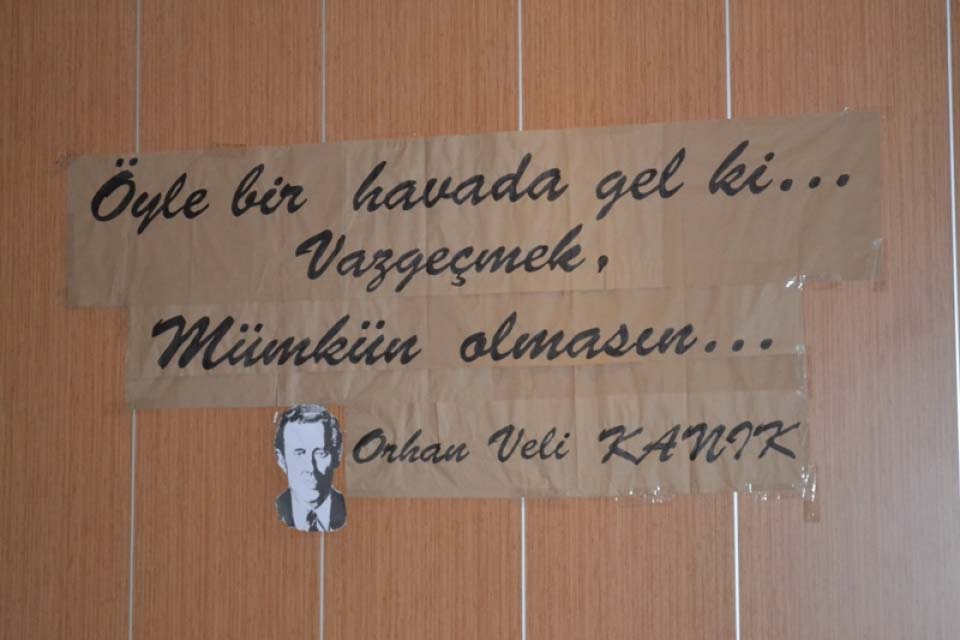 Öyle bir havada gel ki...
Vazgeçmek,
Mümkün olmasın...
Orhan Veli KANIK